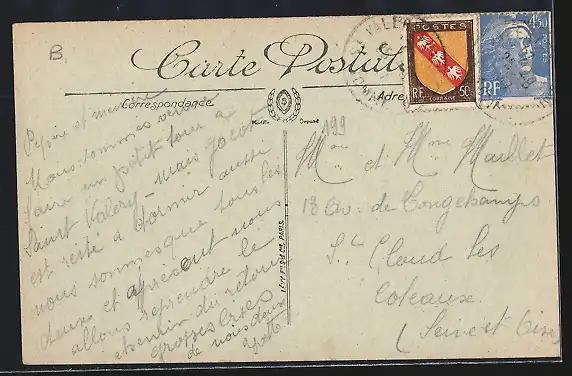 B
Carte Postale
Correspondance
Adresse
Modèle Déposé
VALERY
POSTES
RF 50c
LORRAINE
4F50
POSTES
RF
199
Pépère et mémère
Nous sommes venu
faire un petit tour a
Saint Valery - mais Jacot
est resté a dormir aussi
nous sommes que tous les
deux et apresent nous
allons reprendre le
chemin du retour
grosses bises
de nous deux
Mr et Mme Maillet
18 Av. de Longchamps
St Cloud les
Coteaux
(Seine et Oise)
PARIS